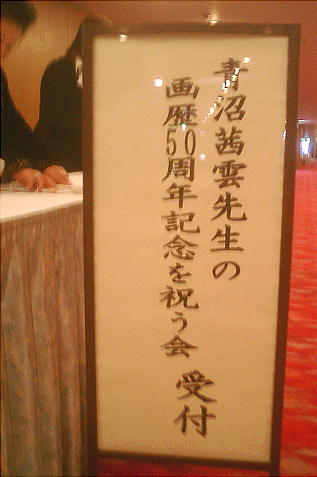 青沼茜雲先生の
画歴50周年記念を祝う会
受付